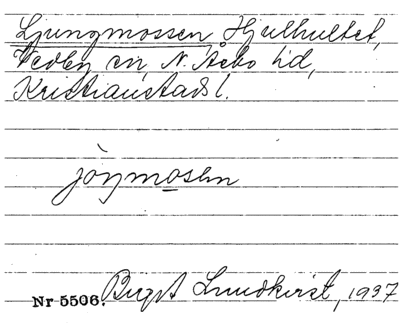 Ljungmossen Hjulhultet,
Vedby sn N. Åsbo hd,
Kristianstads l.
jòŋmosen
Nr 5506. Birgit Lundkvist, 1937